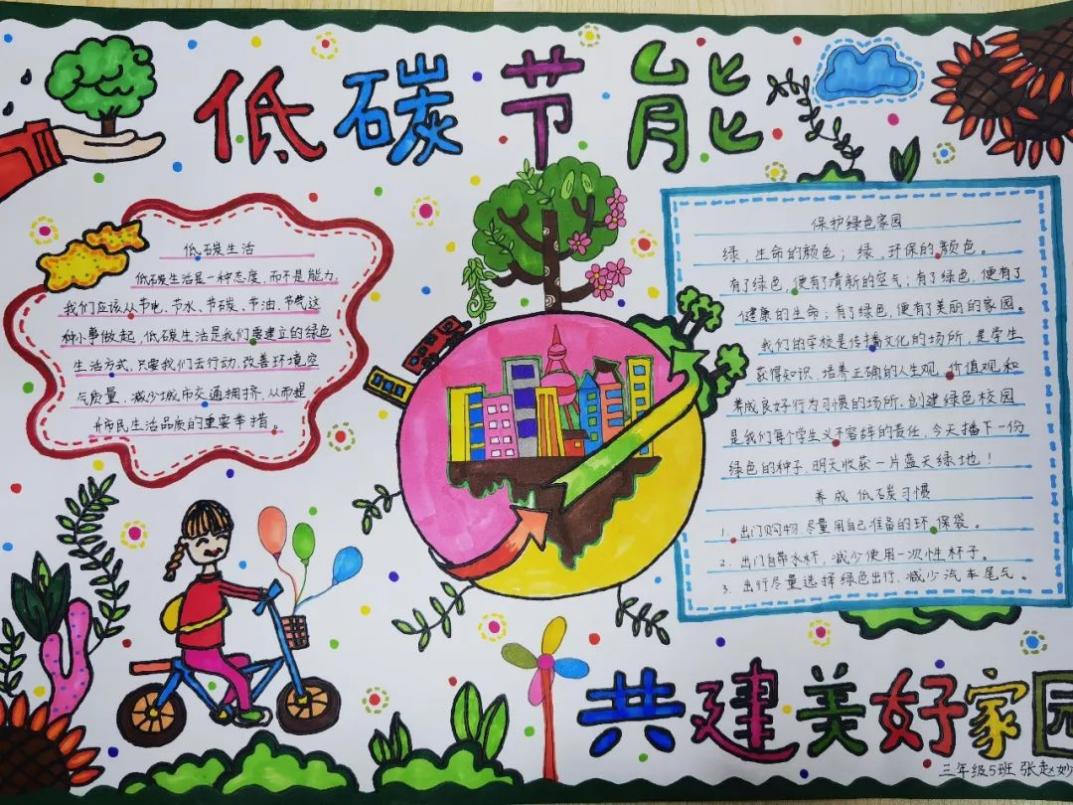 低碳节能
低碳生活
低碳生活是一种态度,而不是能力,
我们应该从节电、节水、节碳、节油、节气这
种小事做起,低碳生活是我们要建立的绿色
生活方式,只要我们去行动,改善环境空
气质量,减少城市交通拥挤,从而提
升市民生活品质的重要举措。
保护绿色家园
绿,生命的颜色;绿,环保的颜色。
有了绿色,便有了清新的空气;有了绿色,便有了
健康的生命;有了绿色,便有了美丽的家园。
我们的学校是传播文化的场所,是学生
获得知识、培养正确的人生观、价值观和
养成良好行为习惯的场所,创建绿色校园
是我们每个学生义不容辞的责任,今天播下一份
绿色的种子,明天收获一片蓝天绿地!
养成低碳习惯
1. 出门购物,尽量用自己准备的环保袋。
2. 出门自带水杯,减少使用一次性杯子。
3. 出行尽量选择绿色出行,减少汽车尾气。
共建美好家园
三年级5班 张赵妙